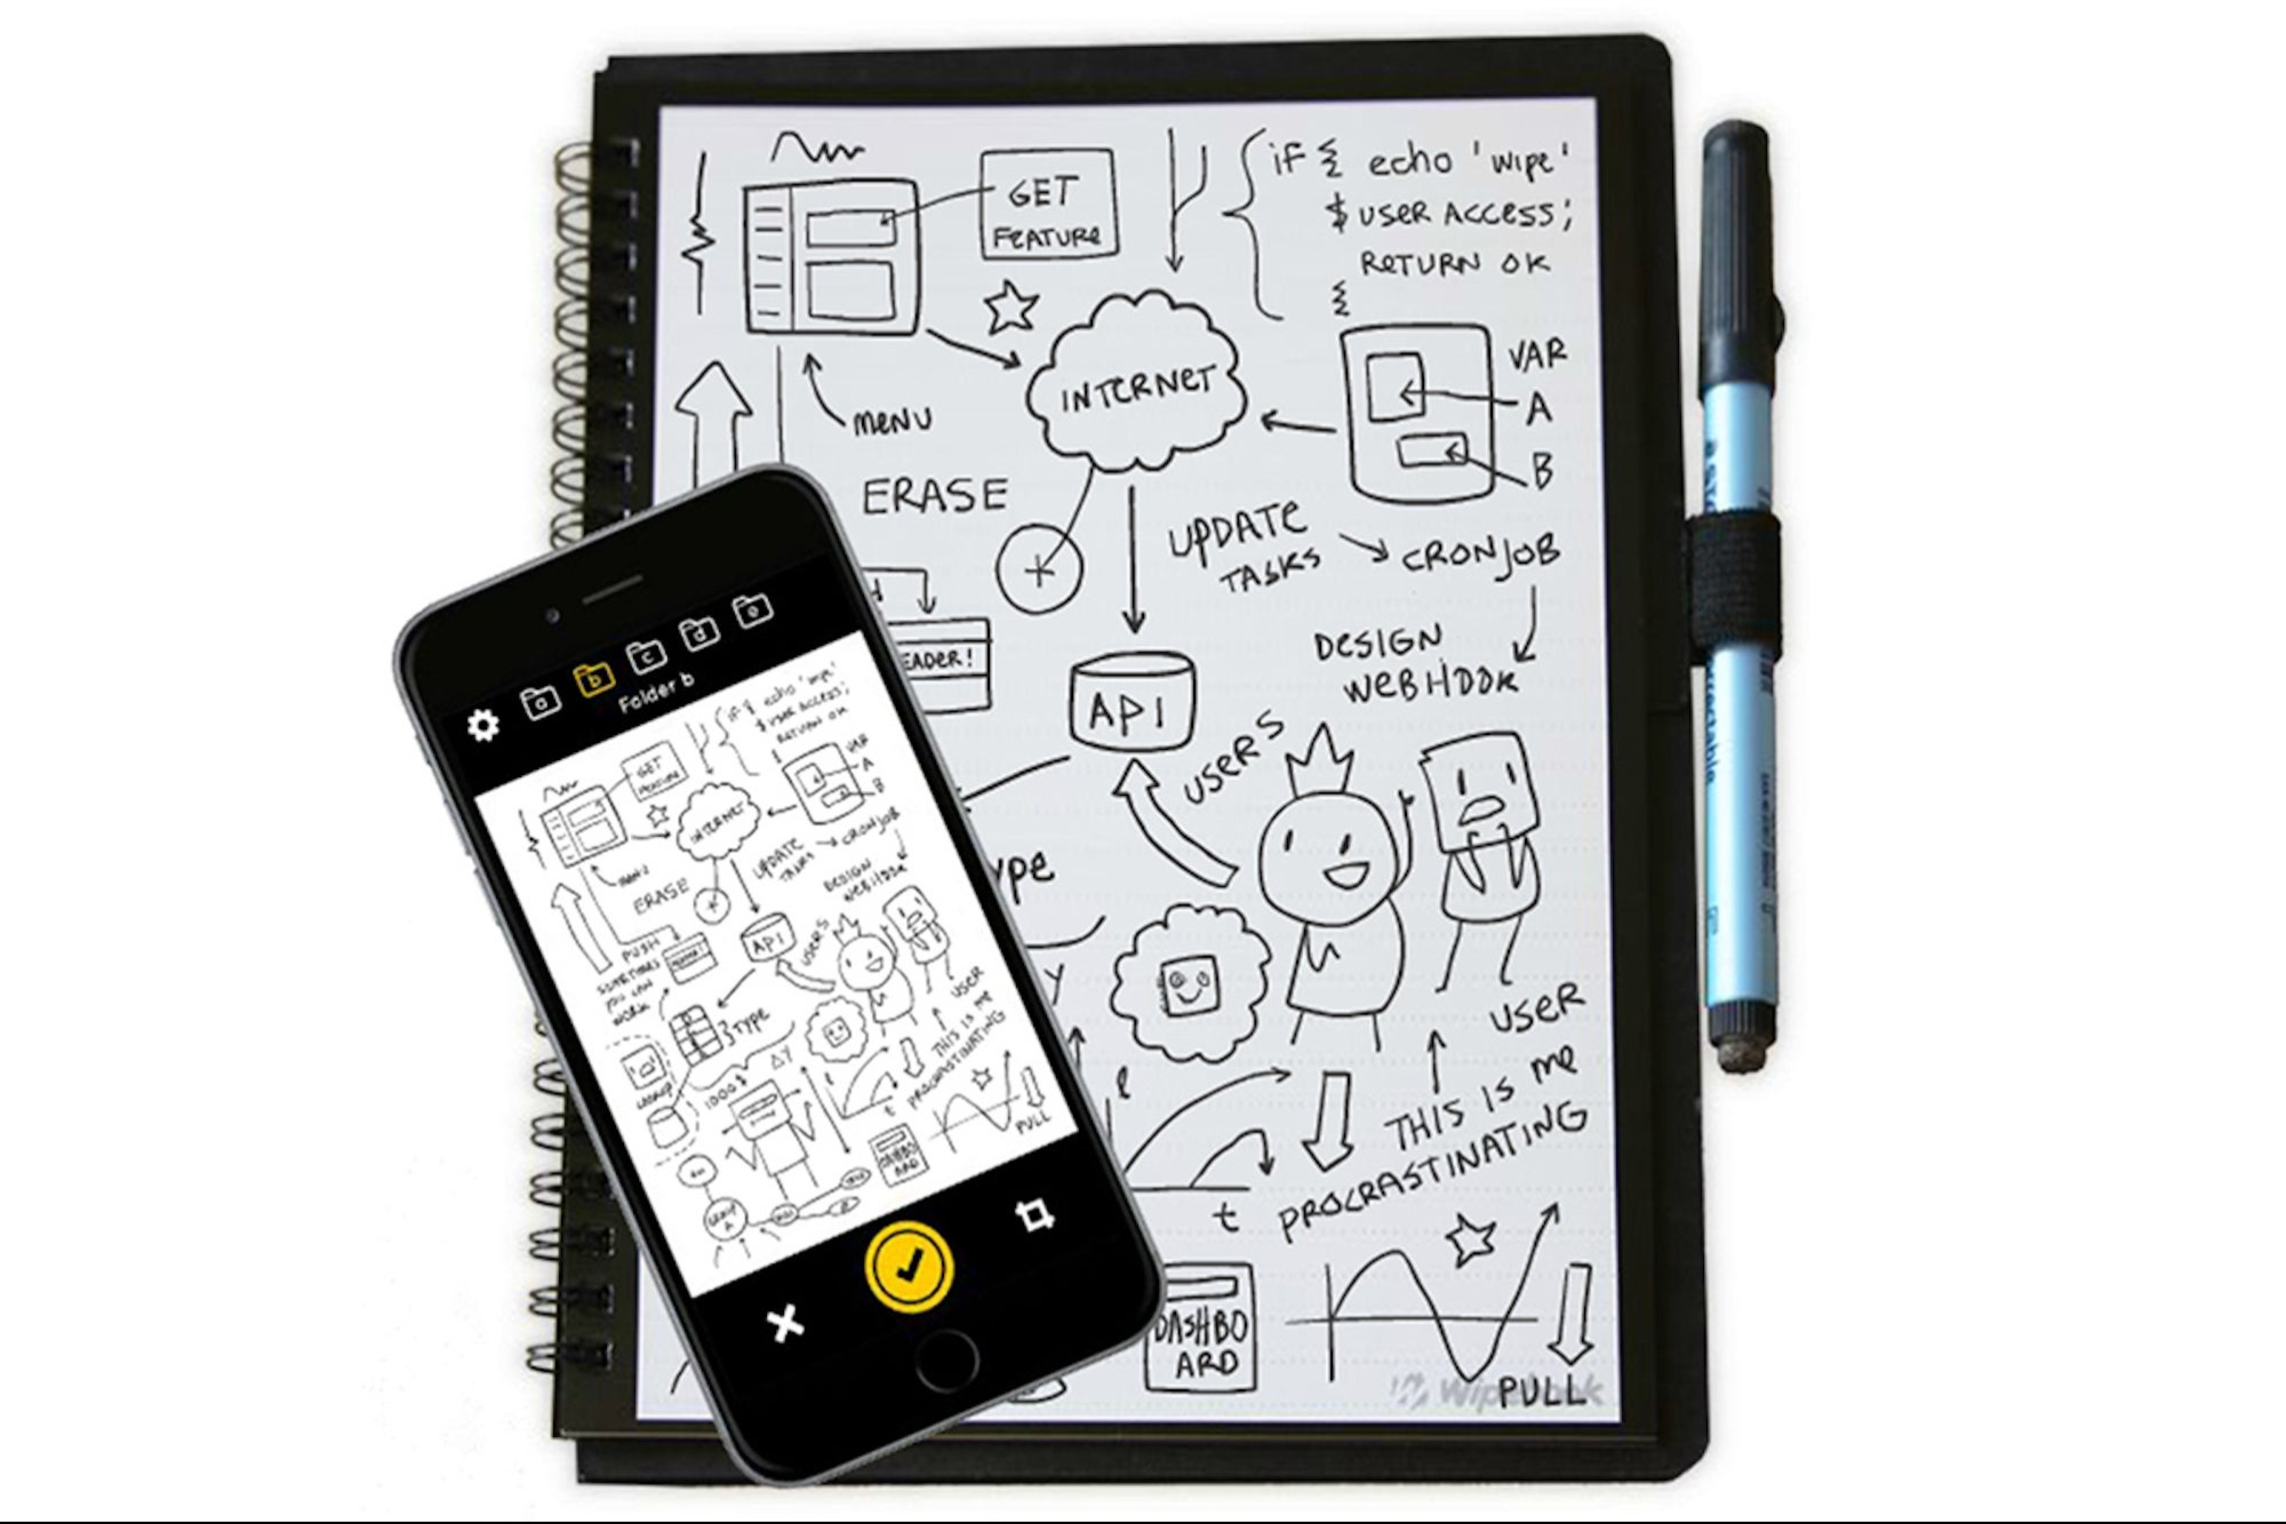 if { echo 'wipe'
$ USER ACCESS;
RETURN OK
GET
FEATURE
INTERNET
VAR
A
B
MENU
ERASE
UPDATE
TASKS
CRONJOB
DESIGN
WEBHOOK
EADER!
API
USERS
ype
Y
USER
THIS IS ME
PROCRASTINATING
t
DASHBO
ARD
PULL
Wipebook
a
b
c
d
e
Folder b
if { echo 'wipe'
$ USER ACCESS;
RETURN OK
GET
FEATURE
INTERNET
VAR
A
B
MENU
ERASE
UPDATE
TASKS
CRONJOB
DESIGN
WEBHOOK
PUSH
API
USERS
YOU CAN
WORK
TYPE
USER
THIS IS ME
PROCRASTINATING
LOOKUP
1000 $
ΔY
t
DASHBO
ARD
PULL
GROUP
A
correctable